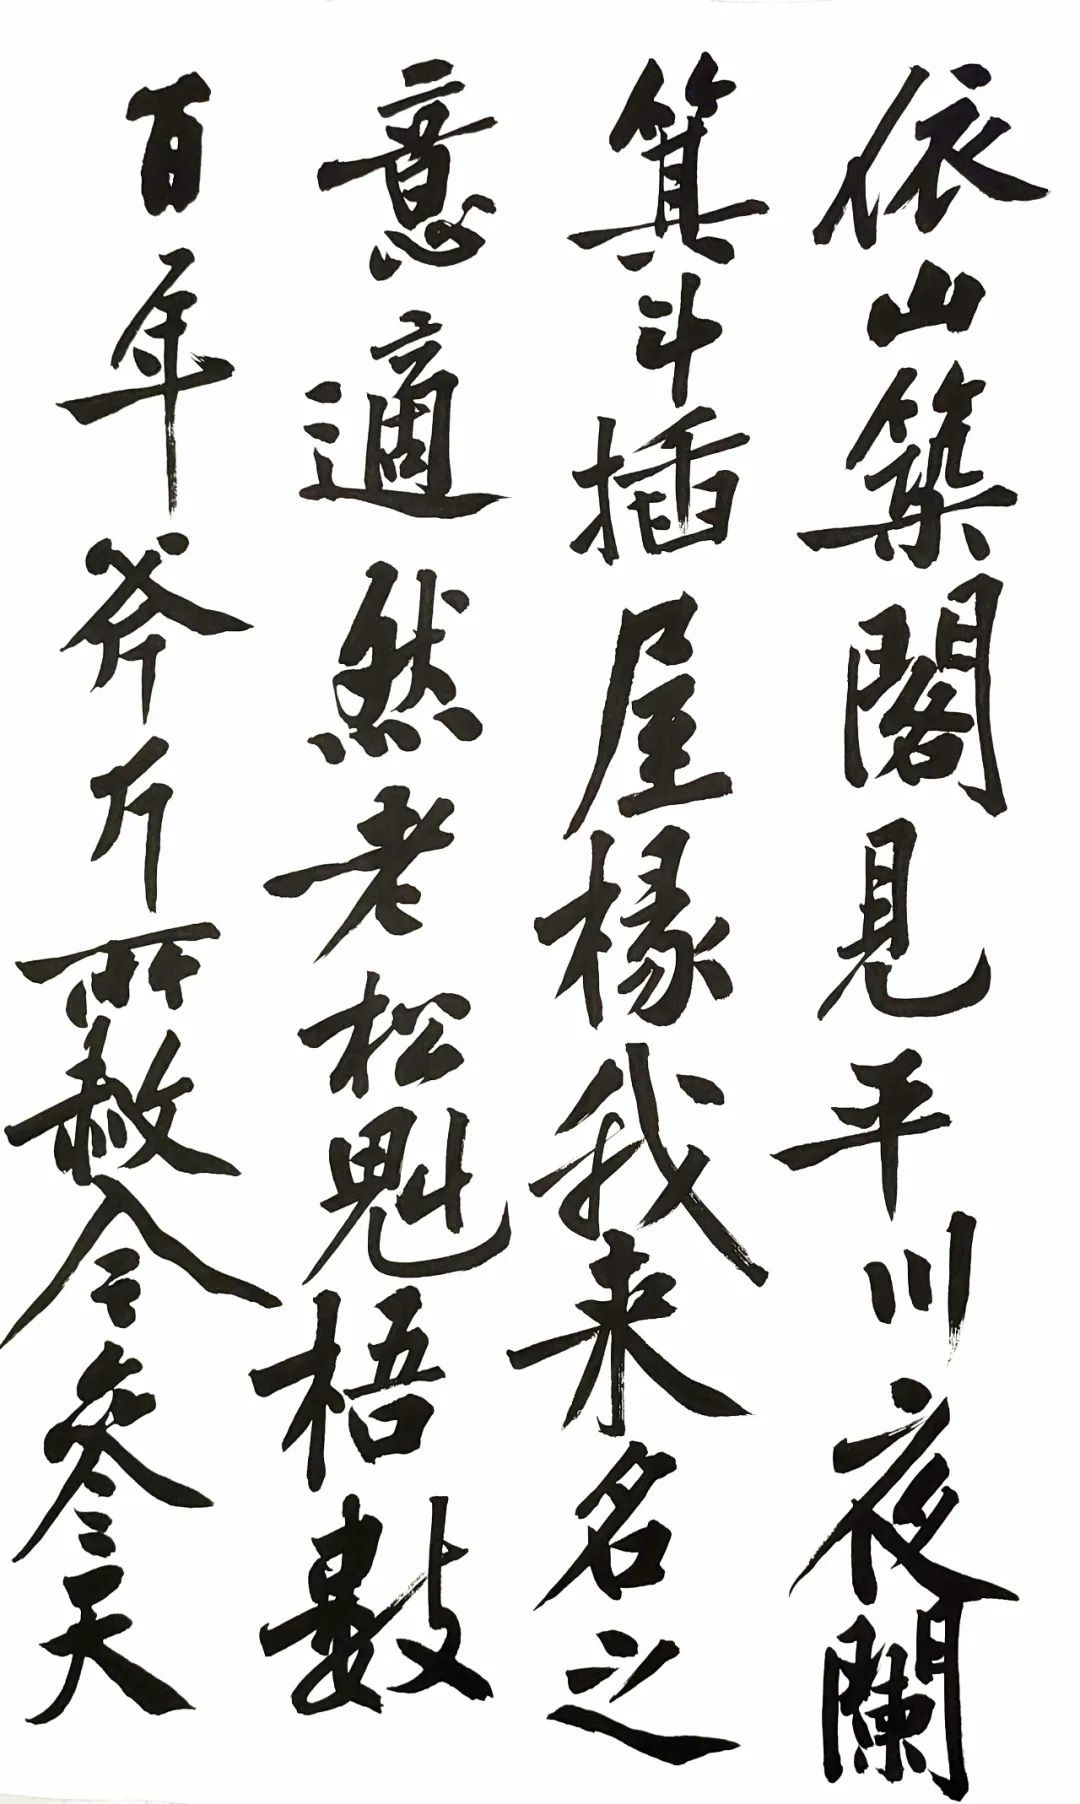 依山築閣見平川夜闌
箕斗插屋椽我来名之
意適然老松魁梧數
百年斧斤所赦今參天